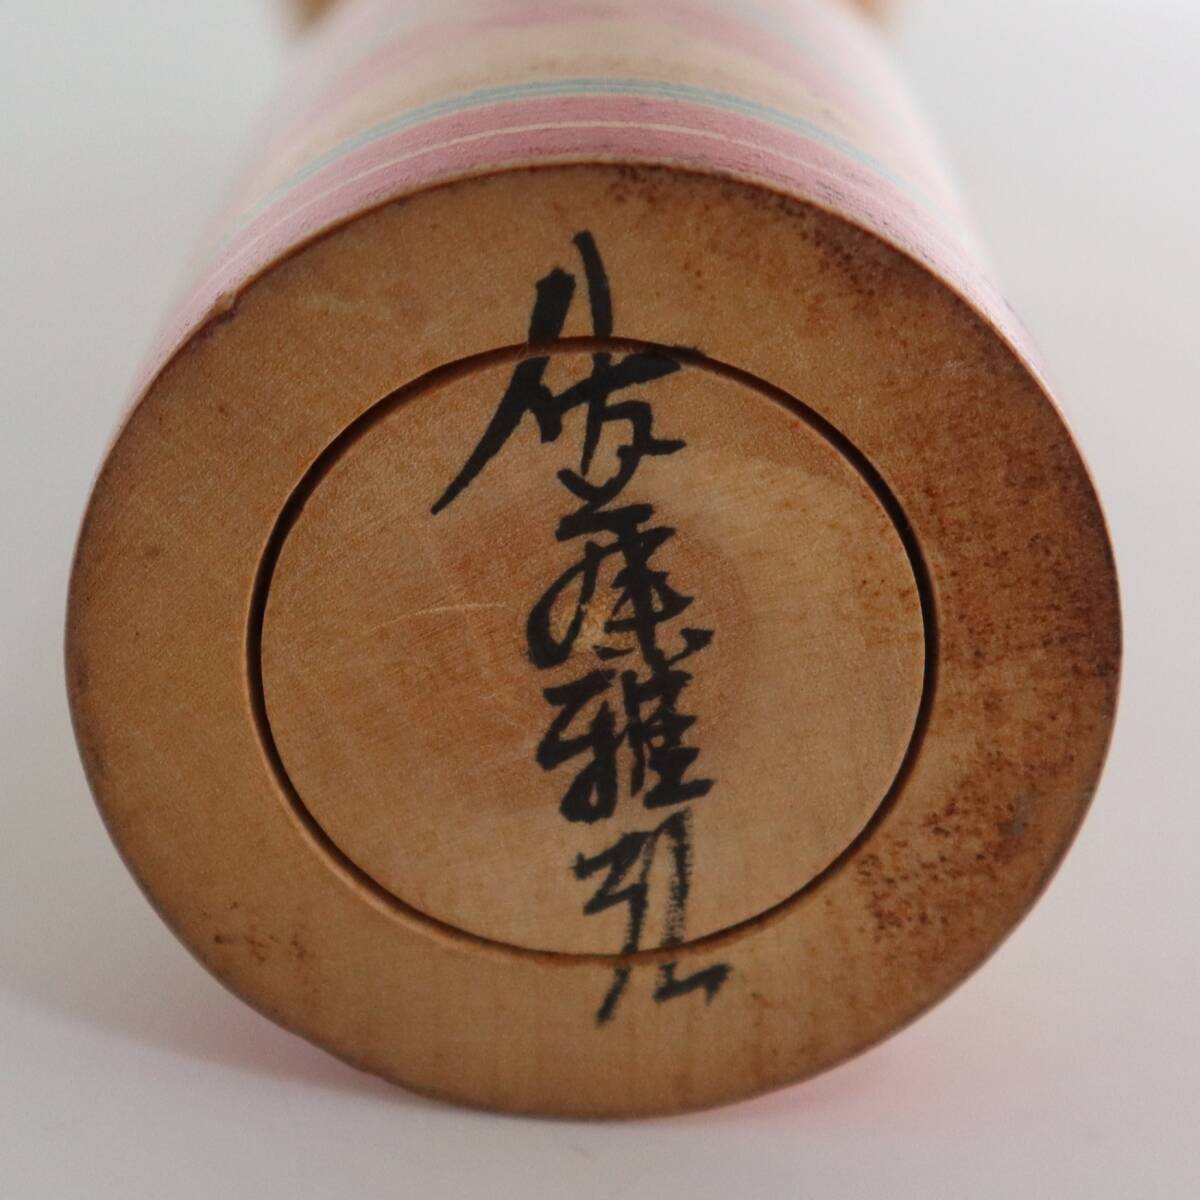 佐藤雅弘